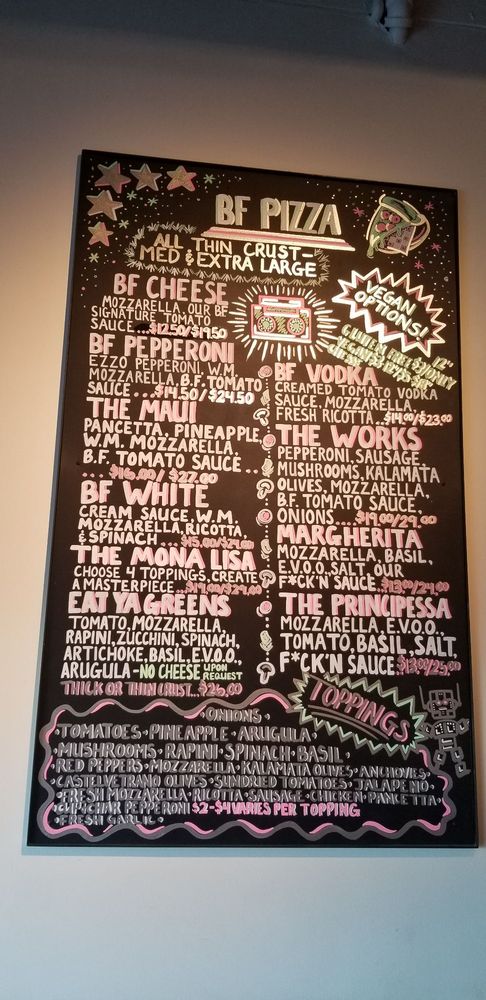 BF PIZZA
ALL THIN CRUST-
MED & EXTRA LARGE
VEGAN
OPTIONS!
BF CHEESE
MOZZARELLA, OUR BF
SIGNATURE TOMATO
SAUCE...$12.50/$19.50
BF PEPPERONI
EZZO PEPPERONI, W.M.
MOZZARELLA, B.F. TOMATO
SAUCE...$14.50/$24.50
THE MAUI
PANCETTA, PINEAPPLE,
W.M. MOZZARELLA,
B.F. TOMATO SAUCE..
... $16.00/ $27.00
BF WHITE
CREAM SAUCE, W.M.
MOZZARELLA, RICOTTA,
& SPINACH...
THE MONA LISA
CHOOSE 4 TOPPINGS, CREATE
A MASTERPIECE...$19.00/$29.00
EAT YA GREENS
TOMATO, MOZZARELLA,
RAPINI, ZUCCHINI, SPINACH,
ARTICHOKE, BASIL, E.V.O.O.,
ARUGULA - NO CHEESE UPON REQUEST
THICK OR THIN CRUST...$26.00
BF VODKA
CREAMED TOMATO VODKA
SAUCE, MOZZARELLA,
FRESH RICOTTA...$14.00/$23.00
THE WORKS
PEPPERONI, SAUSAGE,
MUSHROOMS, KALAMATA
OLIVES, MOZZARELLA,
B.F. TOMATO SAUCE,
ONIONS...$19.00/29.00
MARGHERITA
MOZZARELLA, BASIL,
E.V.O.O, SALT, OUR
F*CK'N SAUCE...$13.00/24.00
THE PRINCIPESSA
MOZZARELLA, E.V.O.O.,
TOMATO, BASIL, SALT,
F*CK'N SAUCE.$13.00/25.00
TOPPINGS
• ONIONS •
• TOMATOES • PINEAPPLE • ARUGULA •
• MUSHROOMS • RAPINI • SPINACH • BASIL •
RED PEPPERS • MOZZARELLA • KALAMATA OLIVES • ANCHOVIES •
• CASTELVETRANO OLIVES • SUNDRIED TOMATOES • JALAPENO •
• FRESH MOZZARELLA • RICOTTA • SAUSAGE • CHICKEN • PANCETTA •
• CUP & CHAR PEPPERONI $2-$4 VARIES PER TOPPING
• FRESH GARLIC •